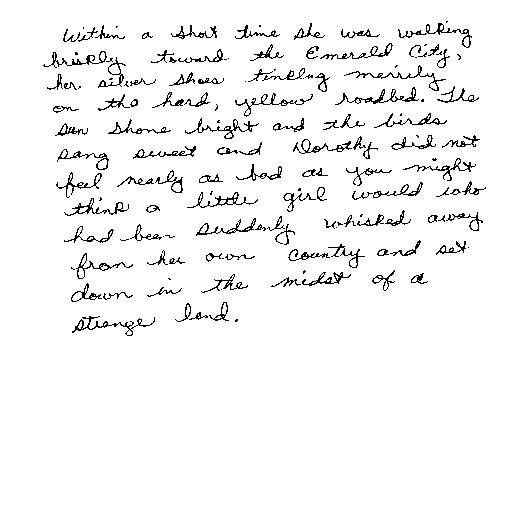 Within a short time she was walking
briskly toward the Emerald City,
her silver shoes tinkling merrily
on the hard, yellow roadbed. The
sun shone bright and the birds
sang sweet and Dorothy did not
feel nearly as bad as you might
think a little girl would who
had been suddenly whisked away
from her own country and set
down in the midst of a
strange land.